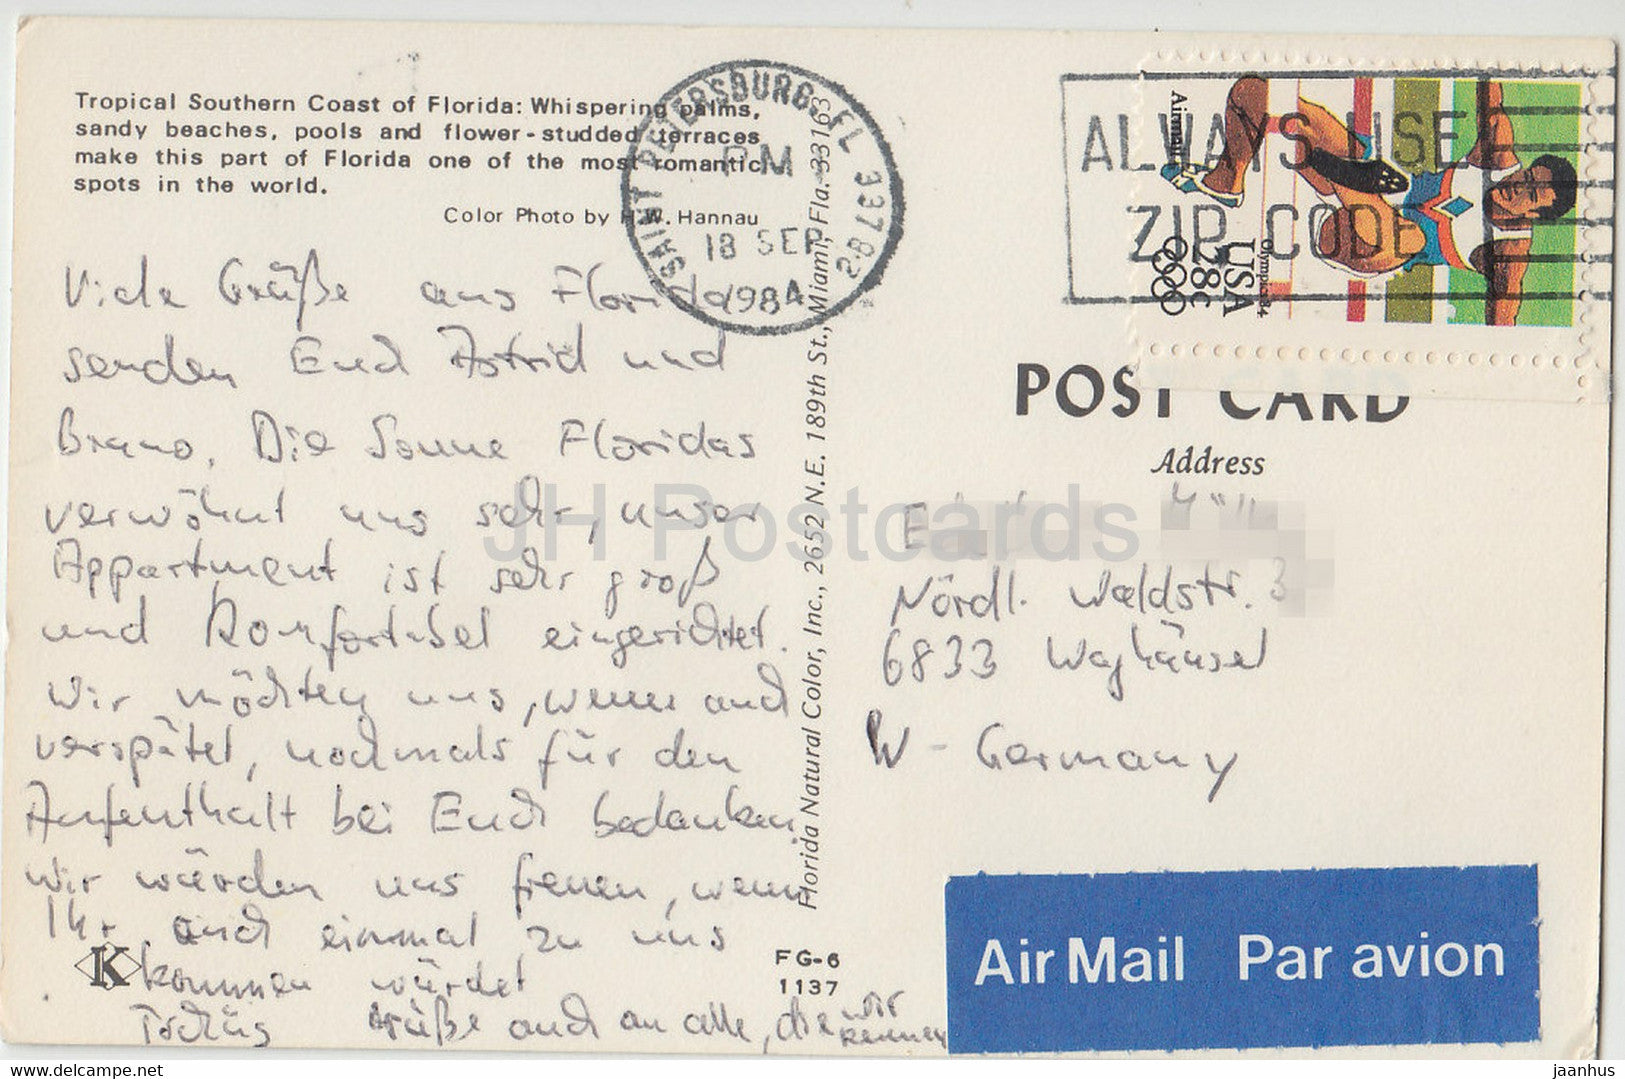 Tropical Southern Coast of Florida: Whispering palms,
sandy beaches, pools and flower-studded terraces
make this part of Florida one of the most romantic
spots in the world.
Color Photo by H.W. Hannau
Viele Grüße aus Florida
senden Euch Astrid und
Bruno. Die Sonne Floridas
verwöhnt uns sehr, unser
Appartment ist sehr groß
und komfortabel eingerichtet.
Wir möchten uns, wenn auch
verspätet, nochmals für den
Aufenthalt bei Euch bedanken.
Wir würden uns freuen, wenn
Ihr auch einmal zu uns
kommen würdet
Tschüs Grüße auch an alle, die wir
kennen
K
FG-6
1137
Florida Natural Color, Inc., 2652 N.E. 189th St., Miami, Fla. 33163
SAINT PETERSBURG, FL 337
PM
18 SEP
1984
2-B
ALWAYS USE
ZIP CODE
Airmail
Olympics 84
USA
28c
POST CARD
Address
Nördl. Waldstr. 3
6833 Waghäusel
W-Germany
Air Mail Par avion
JH Postcards
hippostcard.com
jaanhus